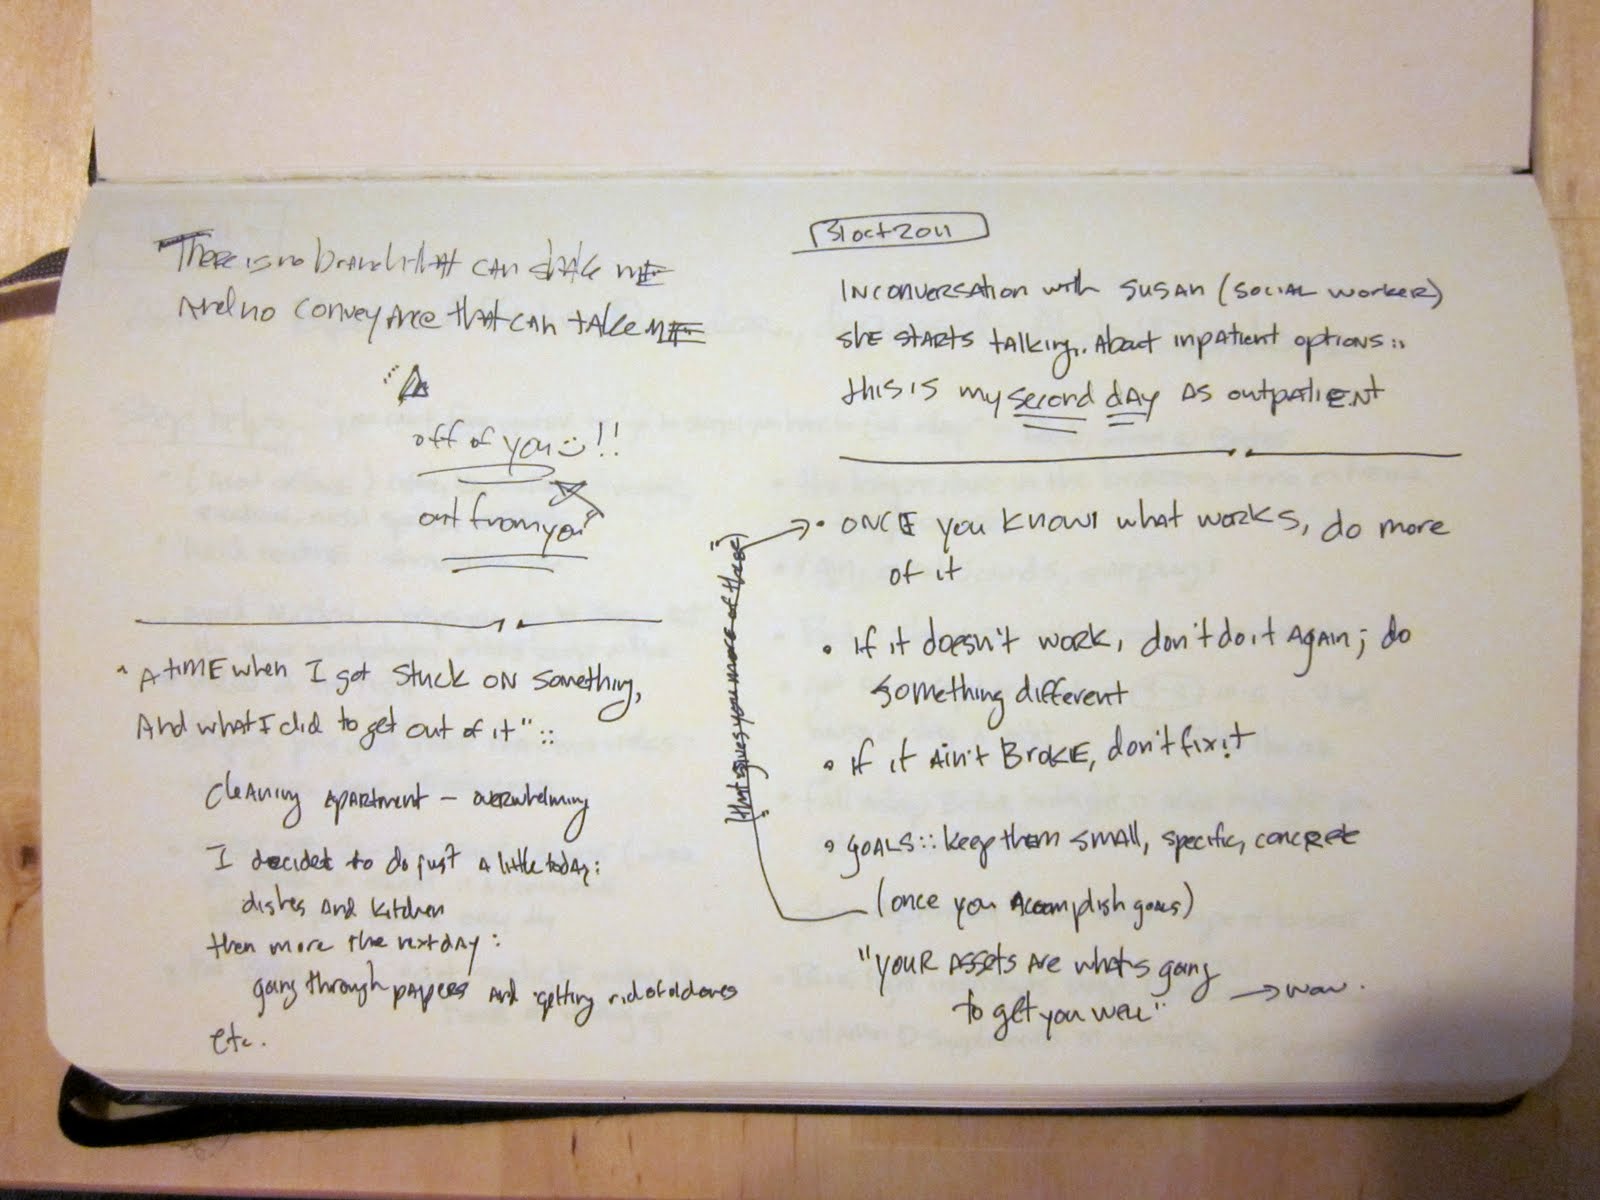 There is no branch that can shake me
And no conveyance that can take me
off of you !!
out from you
"A time when I got stuck on something,
And what I did to get out of it" ::
Cleaning apartment – overwhelming
I decided to do just a little today:
dishes and kitchen
then more the next day:
going through papers and getting rid of old ones
etc.
31 oct 2011
In conversation with Susan (social worker)
she starts talking.. About inpatient options ::
this is my second day as outpatient
• Once you know what works, do more
of it
• If it doesn't work, don't do it again; do
something different
• If it ain't broke, don't fix it
• Goals :: keep them small, specific, concrete
(once you accomplish goals)
that gives you more of these
"Your assets are what's going
to get you well" → wow.